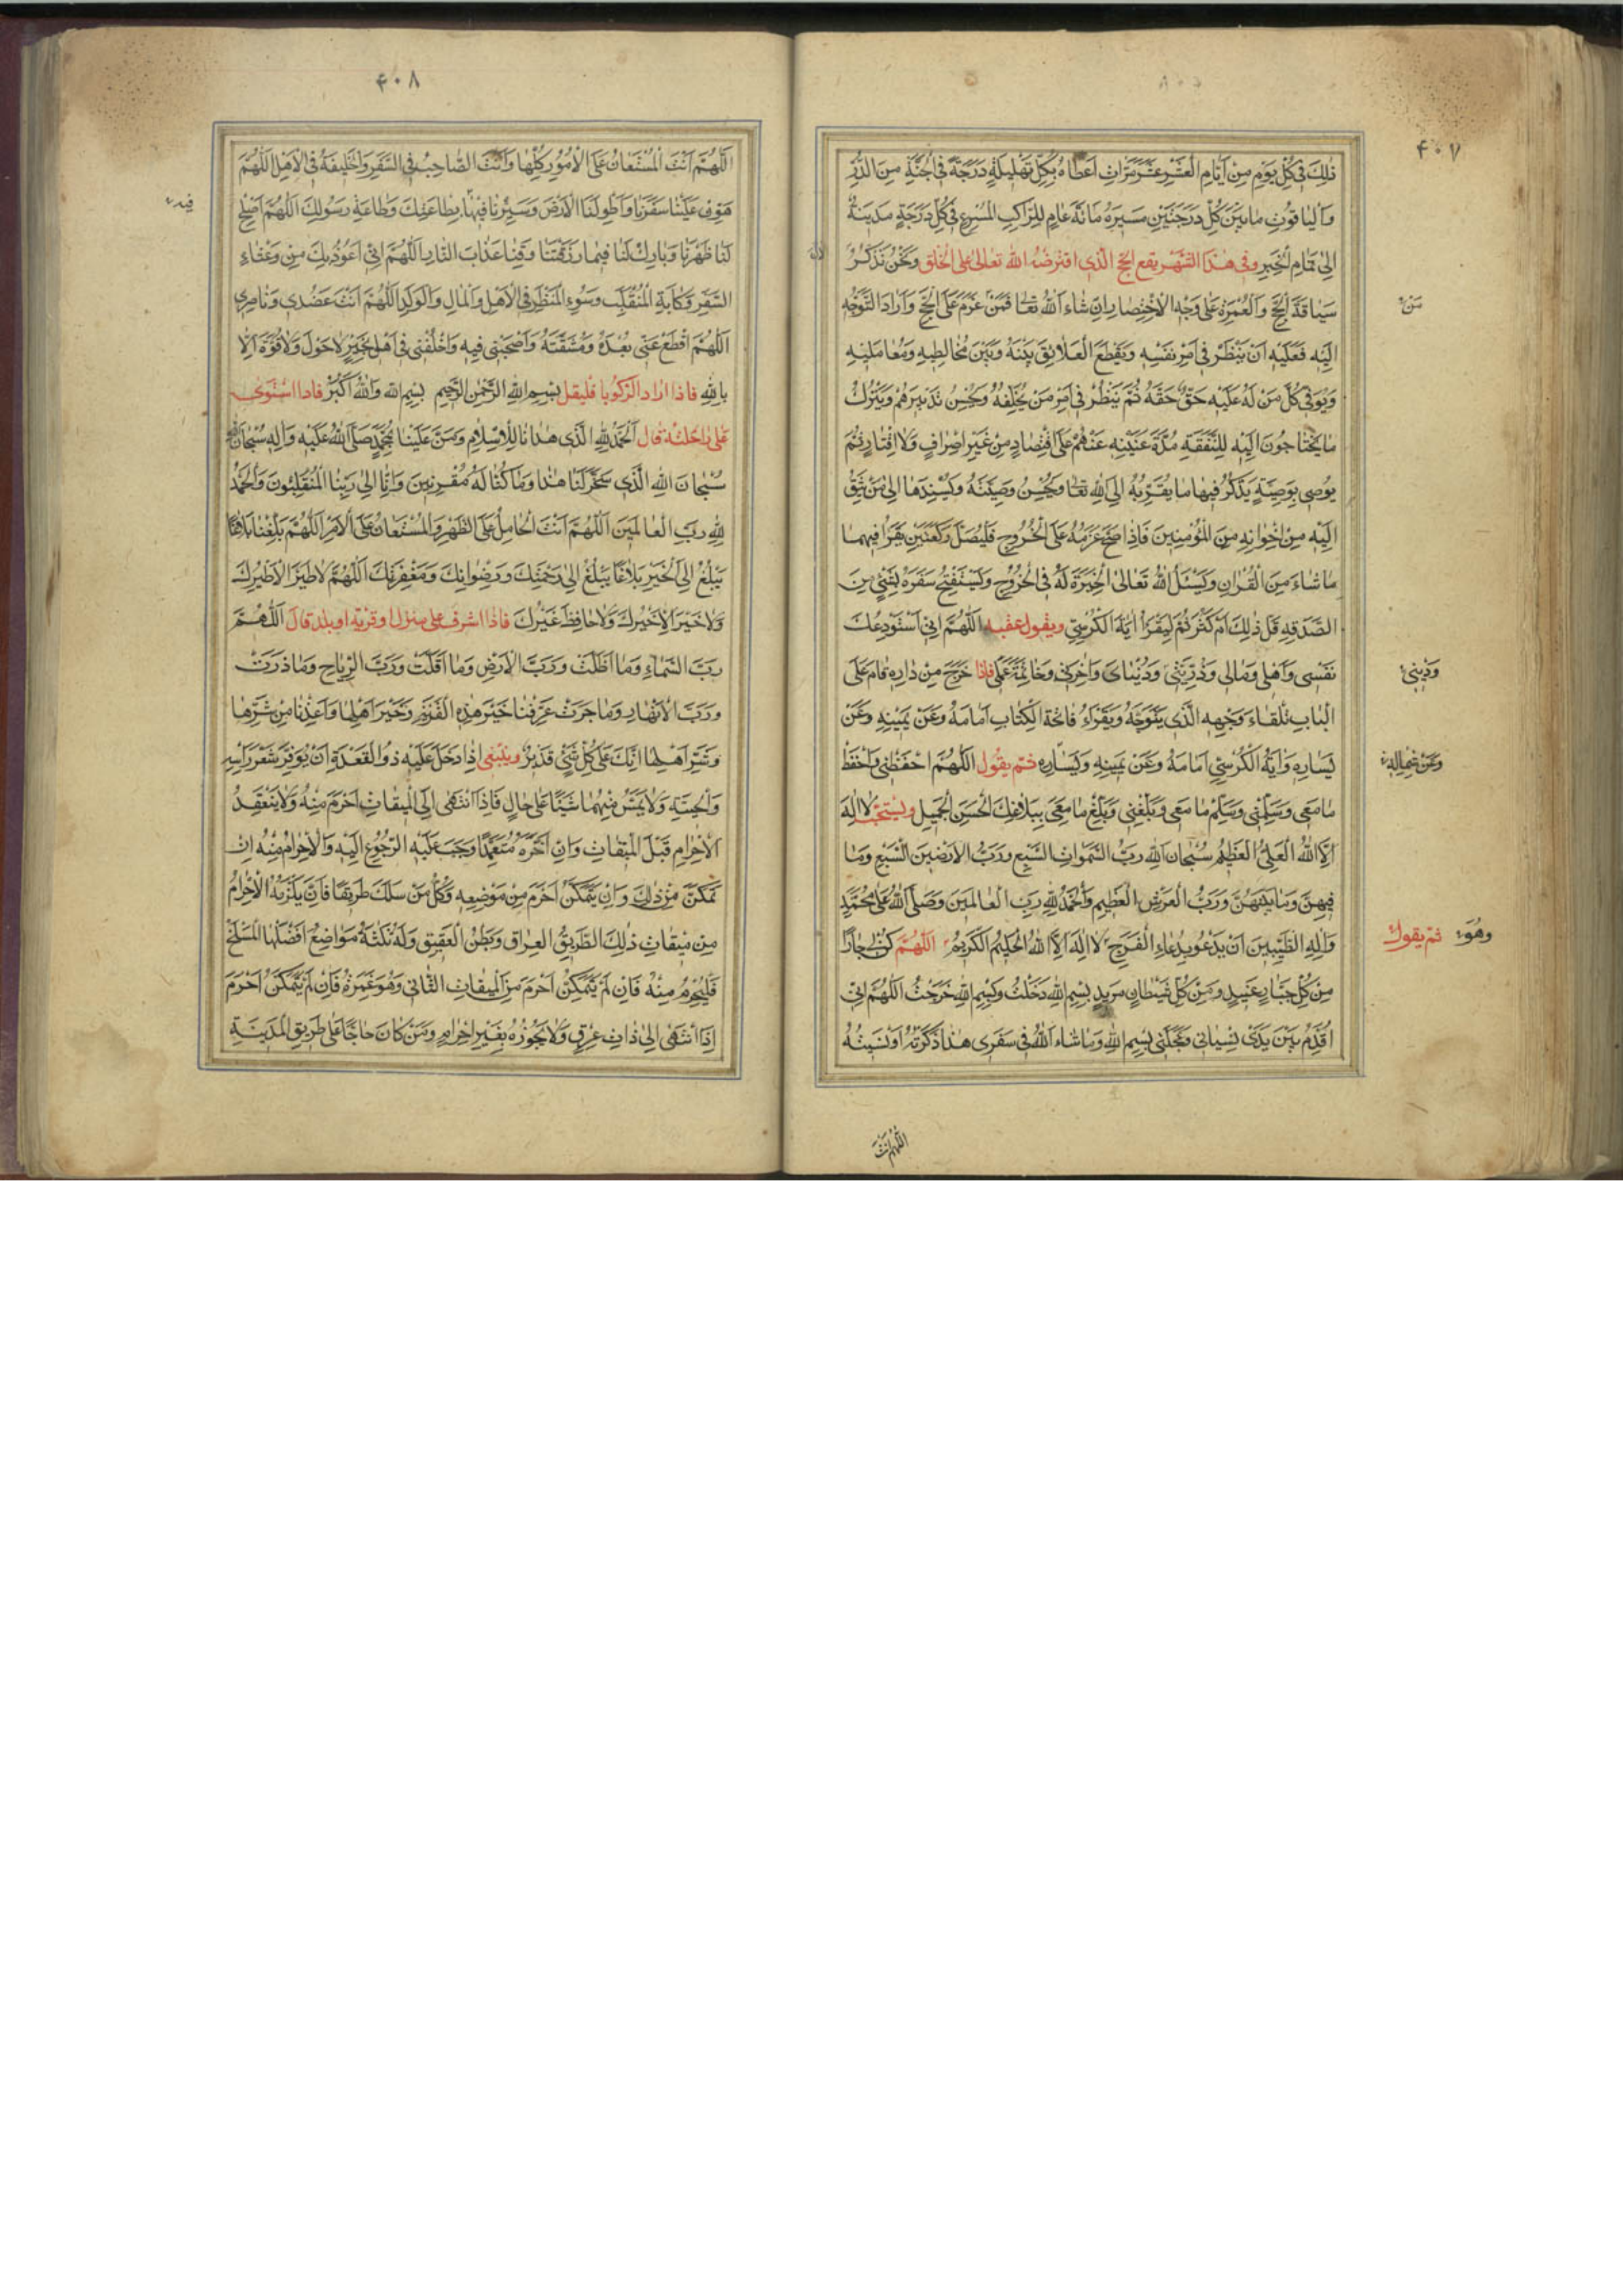 ۴۰۷
ذٰلِكَ فِي كُلِّ يَوْمٍ مِنْ اَيَّامِ الْعَشْرِ عَشْرَ مَرَّاتٍ اَعْطَاهُ بِكُلِّ تَهْلِيلَةٍ دَرَجَةً فِي الْجَنَّةِ مِنَ الدُّرِّ
وَالْيَاقُوتِ مَا بَيْنَ كُلِّ دَرَجَتَيْنِ مَسِيرَةُ مِائَةِ عَامٍ لِلرَّاكِبِ الْمُسْرِعِ فِي كُلِّ دَرَجَةٍ مَدِينَةٌ
اِلىٰ تَمَامِ الْخَبَرِ وفى هٰذَا الشَّهْرِ يقع الحج الَّذى افترضهُ الله تعالىٰ على الخلق وَنَحْنُ نَذْكُرُ
سِيَاقَةَ الْحَجِّ وَالْعُمْرَةِ عَلىٰ وَجْهِ الْاِخْتِصَارِ اِنْ شَاءَ اللهُ تعا فَمَنْ عَزَمَ عَلَى الْحَجِّ وَاَرَادَ التَّوَجُّهَ
مَنْ
اِلَيْهِ فَعَلَيْهِ اَنْ يَنْظُرَ فِي اَمْرِ نَفْسِهِ وَيَقْطَعَ الْعَلَائِقَ بَيْنَهُ وَبَيْنَ مُخَالِطِيهِ وَمُعَامِلِيهِ
وَيُوَفِّي كُلَّ مَنْ لَهُ عَلَيْهِ حَقٌّ حَقَّهُ ثُمَّ يَنْظُرُ فِي اَمْرِ مَنْ يُخَلِّفُهُ وَيُحْسِنُ تَدْبِيرَهُمْ وَيَتْرُكُ
مَا يَحْتَاجُونَ اِلَيْهِ لِلنَّفَقَةِ مُدَّةَ غَيْبَتِهِ عَنْهُمْ عَلَى اقْتِصَادٍ مِنْ غَيْرِ اِسْرَافٍ وَلَا اِقْتَارٍ ثُمَّ
يُوصِي بِوَصِيَّةٍ يَذْكُرُ فِيهَا مَا يُقَرِّبُهُ اِلَى اللهِ تعا وَيُحْسِنُ وَصِيَّتَهُ وَيُسْنِدُهَا اِلىٰ مَنْ يَثِقُ
اِلَيْهِ مِنْ اِخْوَانِهِ مِنَ الْمُؤْمِنِينَ فَاِذَا صَحَّ عَزْمُهُ عَلَى الْخُرُوجِ فَلْيُصَلِّ رَكْعَتَيْنِ يَقْرَأُ فِيهِمَا
مَا شَاءَ مِنَ الْقُرْاٰنِ وَيَسْئَلُ اللهَ تَعَالىٰ الْخِيَرَةَ لَهُ فِي الْخُرُوجِ وَيَسْتَفْتِحُ سَفَرَهُ بِشَيْءٍ مِنَ
الصَّدَقَةِ قَلَّ ذٰلِكَ اَمْ كَثُرَ ثُمَّ لْيَقْرَأْ اٰيَةَ الْكُرْسِيِّ ويقول عقيبه اَللّٰهُمَّ اِنِّي اَسْتَوْدِعُكَ
نَفْسِي وَاَهْلِي وَمَالِي وَذُرِّيَّتِي وَدُنْيَايَ وَاٰخِرَتِي وَخَاتِمَةَ عَمَلِي فاذا خَرَجَ مِنْ دَارِهِ قَامَ عَلَى
وَدِينِي
الْبَابِ تِلْقَاءَ وَجْهِهِ الَّذِي يَتَوَجَّهُ وَيَقْرَأُ فَاتِحَةَ الْكِتَابِ اَمَامَهُ وَعَنْ يَمِينِهِ وَعَنْ
يَسَارِهِ وَاٰيَةَ الْكُرْسِيِّ اَمَامَهُ وَعَنْ يَمِينِهِ وَيَسَارِهِ ثم يقول اَللّٰهُمَّ احْفَظْنِي وَاحْفَظْ
وَعَنْ شِمَالِهِ
مَا مَعِي وَسَلِّمْنِي وَسَلِّمْ مَا مَعِي وَبَلِّغْنِي وَبَلِّغْ مَا مَعِيَ بِبَلَاغِكَ الْحَسَنِ الْجَمِيلِ ويستحب لَا اِلٰهَ
اِلَّا اللهُ الْعَلِيُّ الْعَظِيمُ سُبْحَانَ اللهِ رَبِّ السَّمٰوَاتِ السَّبْعِ وَرَبِّ الْاَرَضِينَ السَّبْعِ وَمَا
فِيهِنَّ وَمَا بَيْنَهُنَّ وَرَبِّ الْعَرْشِ الْعَظِيمِ وَالْحَمْدُ لِلّٰهِ رَبِّ الْعَالَمِينَ وَصَلَّى اللهُ عَلىٰ مُحَمَّدٍ
وَاٰلِهِ الطَّيِّبِينَ اَنْ يَدْعُوَ بِدُعَاءِ الْفَرَجِ لَا اِلٰهَ اِلَّا اللهُ الْحَلِيمُ الْكَرِيمُ اَللّٰهُمَّ كُنْ لِي جَارًا
وَهُوَ ثم يقول
مِنْ كُلِّ جَبَّارٍ عَنِيدٍ وَمِنْ كُلِّ شَيْطَانٍ مَرِيدٍ بِسْمِ اللهِ دَخَلْتُ وَبِسْمِ اللهِ خَرَجْتُ اَللّٰهُمَّ اِنِّي
اُقَدِّمُ بَيْنَ يَدَيْ نِسْيَانِي وَعَجَلَتِي بِسْمِ اللهِ وَمَا شَاءَ اللهُ فِي سَفَرِي هٰذَا ذَكَرْتُهُ اَوْ نَسِيتُهُ
اللّٰهُمَّ اَنْتَ
۴۰۸
اَللّٰهُمَّ اَنْتَ الْمُسْتَعَانُ عَلَى الْاُمُورِ كُلِّهَا وَاَنْتَ الصَّاحِبُ فِي السَّفَرِ وَالْخَلِيفَةُ فِي الْاَهْلِ اَللّٰهُمَّ
هَوِّنْ عَلَيْنَا سَفَرَنَا وَاطْوِ لَنَا الْاَرْضَ وَسَيِّرْنَا فِيهَا بِطَاعَتِكَ وَطَاعَةِ رَسُولِكَ اَللّٰهُمَّ اَصْلِحْ
لَنَا ظَهْرَنَا وَبَارِكْ لَنَا فِيمَا رَزَقْتَنَا وَقِنَا عَذَابَ النَّارِ اَللّٰهُمَّ اِنِّي اَعُوذُ بِكَ مِنْ وَعْثَاءِ
السَّفَرِ وَكَاٰبَةِ الْمُنْقَلَبِ وَسُوءِ الْمَنْظَرِ فِي الْاَهْلِ وَالْمَالِ وَالْوَلَدِ اَللّٰهُمَّ اَنْتَ عَضُدِي وَنَاصِرِي
اَللّٰهُمَّ اقْطَعْ عَنِّي بُعْدَهُ وَمَشَقَّتَهُ وَاصْحَبْنِي فِيهِ وَاخْلُفْنِي فِي اَهْلِي بِخَيْرٍ لَا حَوْلَ وَلَا قُوَّةَ اِلَّا
بِاللهِ فاذا اراد الركوب فليقل بِسْمِ اللهِ الرَّحْمٰنِ الرَّحِيمِ بِسْمِ اللهِ وَاللهُ اَكْبَرُ فاذا استوى
على راحلته قال اَلْحَمْدُ لِلّٰهِ الَّذِي هَدَانَا لِلْاِسْلَامِ وَمَنَّ عَلَيْنَا بِمُحَمَّدٍ صَلَّى اللهُ عَلَيْهِ وَاٰلِهِ سُبْحَانَ اللهِ
سُبْحَانَ اللهِ الَّذِي سَخَّرَ لَنَا هٰذَا وَمَا كُنَّا لَهُ مُقْرِنِينَ وَاِنَّا اِلىٰ رَبِّنَا لَمُنْقَلِبُونَ وَالْحَمْدُ
لِلّٰهِ رَبِّ الْعَالَمِينَ اَللّٰهُمَّ اَنْتَ الْحَامِلُ عَلَى الظَّهْرِ وَالْمُسْتَعَانُ عَلَى الْاَمْرِ اَللّٰهُمَّ بَلِّغْنَا بَلَاغًا
يَبْلُغُ اِلَى الْخَيْرِ بَلَاغًا يَبْلُغُ اِلىٰ رَحْمَتِكَ وَرِضْوَانِكَ وَمَغْفِرَتِكَ اَللّٰهُمَّ لَا طَيْرَ اِلَّا طَيْرُكَ
وَلَا خَيْرَ اِلَّا خَيْرُكَ وَلَا حَافِظَ غَيْرُكَ فاذا اشرف على منزل او قرية او بلد قال اَللّٰهُمَّ
رَبَّ السَّمَاءِ وَمَا اَظَلَّتْ وَرَبَّ الْاَرْضِ وَمَا اَقَلَّتْ وَرَبَّ الرِّيَاحِ وَمَا ذَرَتْ
وَرَبَّ الْاَنْهَارِ وَمَا جَرَتْ عَرِّفْنَا خَيْرَ هٰذِهِ الْقَرْيَةِ وَخَيْرَ اَهْلِهَا وَاَعِذْنَا مِنْ شَرِّهَا
وَشَرِّ اَهْلِهَا اِنَّكَ عَلىٰ كُلِّ شَيْءٍ قَدِيرٌ وينبغى اِذَا دَخَلَ عَلَيْهِ ذُو الْقَعْدَةِ اَنْ يُوَفِّرَ شَعْرَ رَاْسِهِ
وَلِحْيَتِهِ وَلَا يَمَسَّ مِنْهُمَا شَيْئًا عَلىٰ حَالٍ فَاِذَا انْتَهىٰ اِلَى الْمِيقَاتِ اَحْرَمَ مِنْهُ وَلَا يَنْعَقِدُ
الْاِحْرَامُ قَبْلَ الْمِيقَاتِ وَاِنْ اَخَّرَهُ مُتَعَمِّدًا وَجَبَ عَلَيْهِ الرُّجُوعُ اِلَيْهِ وَالْاِحْرَامُ مِنْهُ اِنْ
تَمَكَّنَ مِنْ ذٰلِكَ وَاِنْ يَتَمَكَّنْ اَحْرَمَ مِنْ مَوْضِعِهِ وَكُلُّ مَنْ سَلَكَ طَرِيقًا فَاِنَّ يَلْزَمُهُ الْاِحْرَامُ
مِنْ مِيقَاتِ ذٰلِكَ الطَّرِيقِ الْعِرَاقِ وَبَطْنُ الْعَقِيقِ وَلَهُ ثَلٰثَةُ مَوَاضِعَ اَفْضَلُهَا الْمَسْلَخُ
فَلْيُحْرِمْ مِنْهُ فَاِنْ لَمْ يَتَمَكَّنْ اَحْرَمَ مِنَ الْمِيقَاتِ الثَّانِي وَهُوَ غَمْرَةُ فَاِنْ لَمْ يَتَمَكَّنْ اَحْرَمَ
اِذَا انْتَهىٰ اِلىٰ ذَاتِ عِرْقٍ وَلَا يَجُوزُهُ بِغَيْرِ اِحْرَامٍ وَمَنْ كَانَ حَاجًّا عَلىٰ طَرِيقِ الْمَدِينَةِ